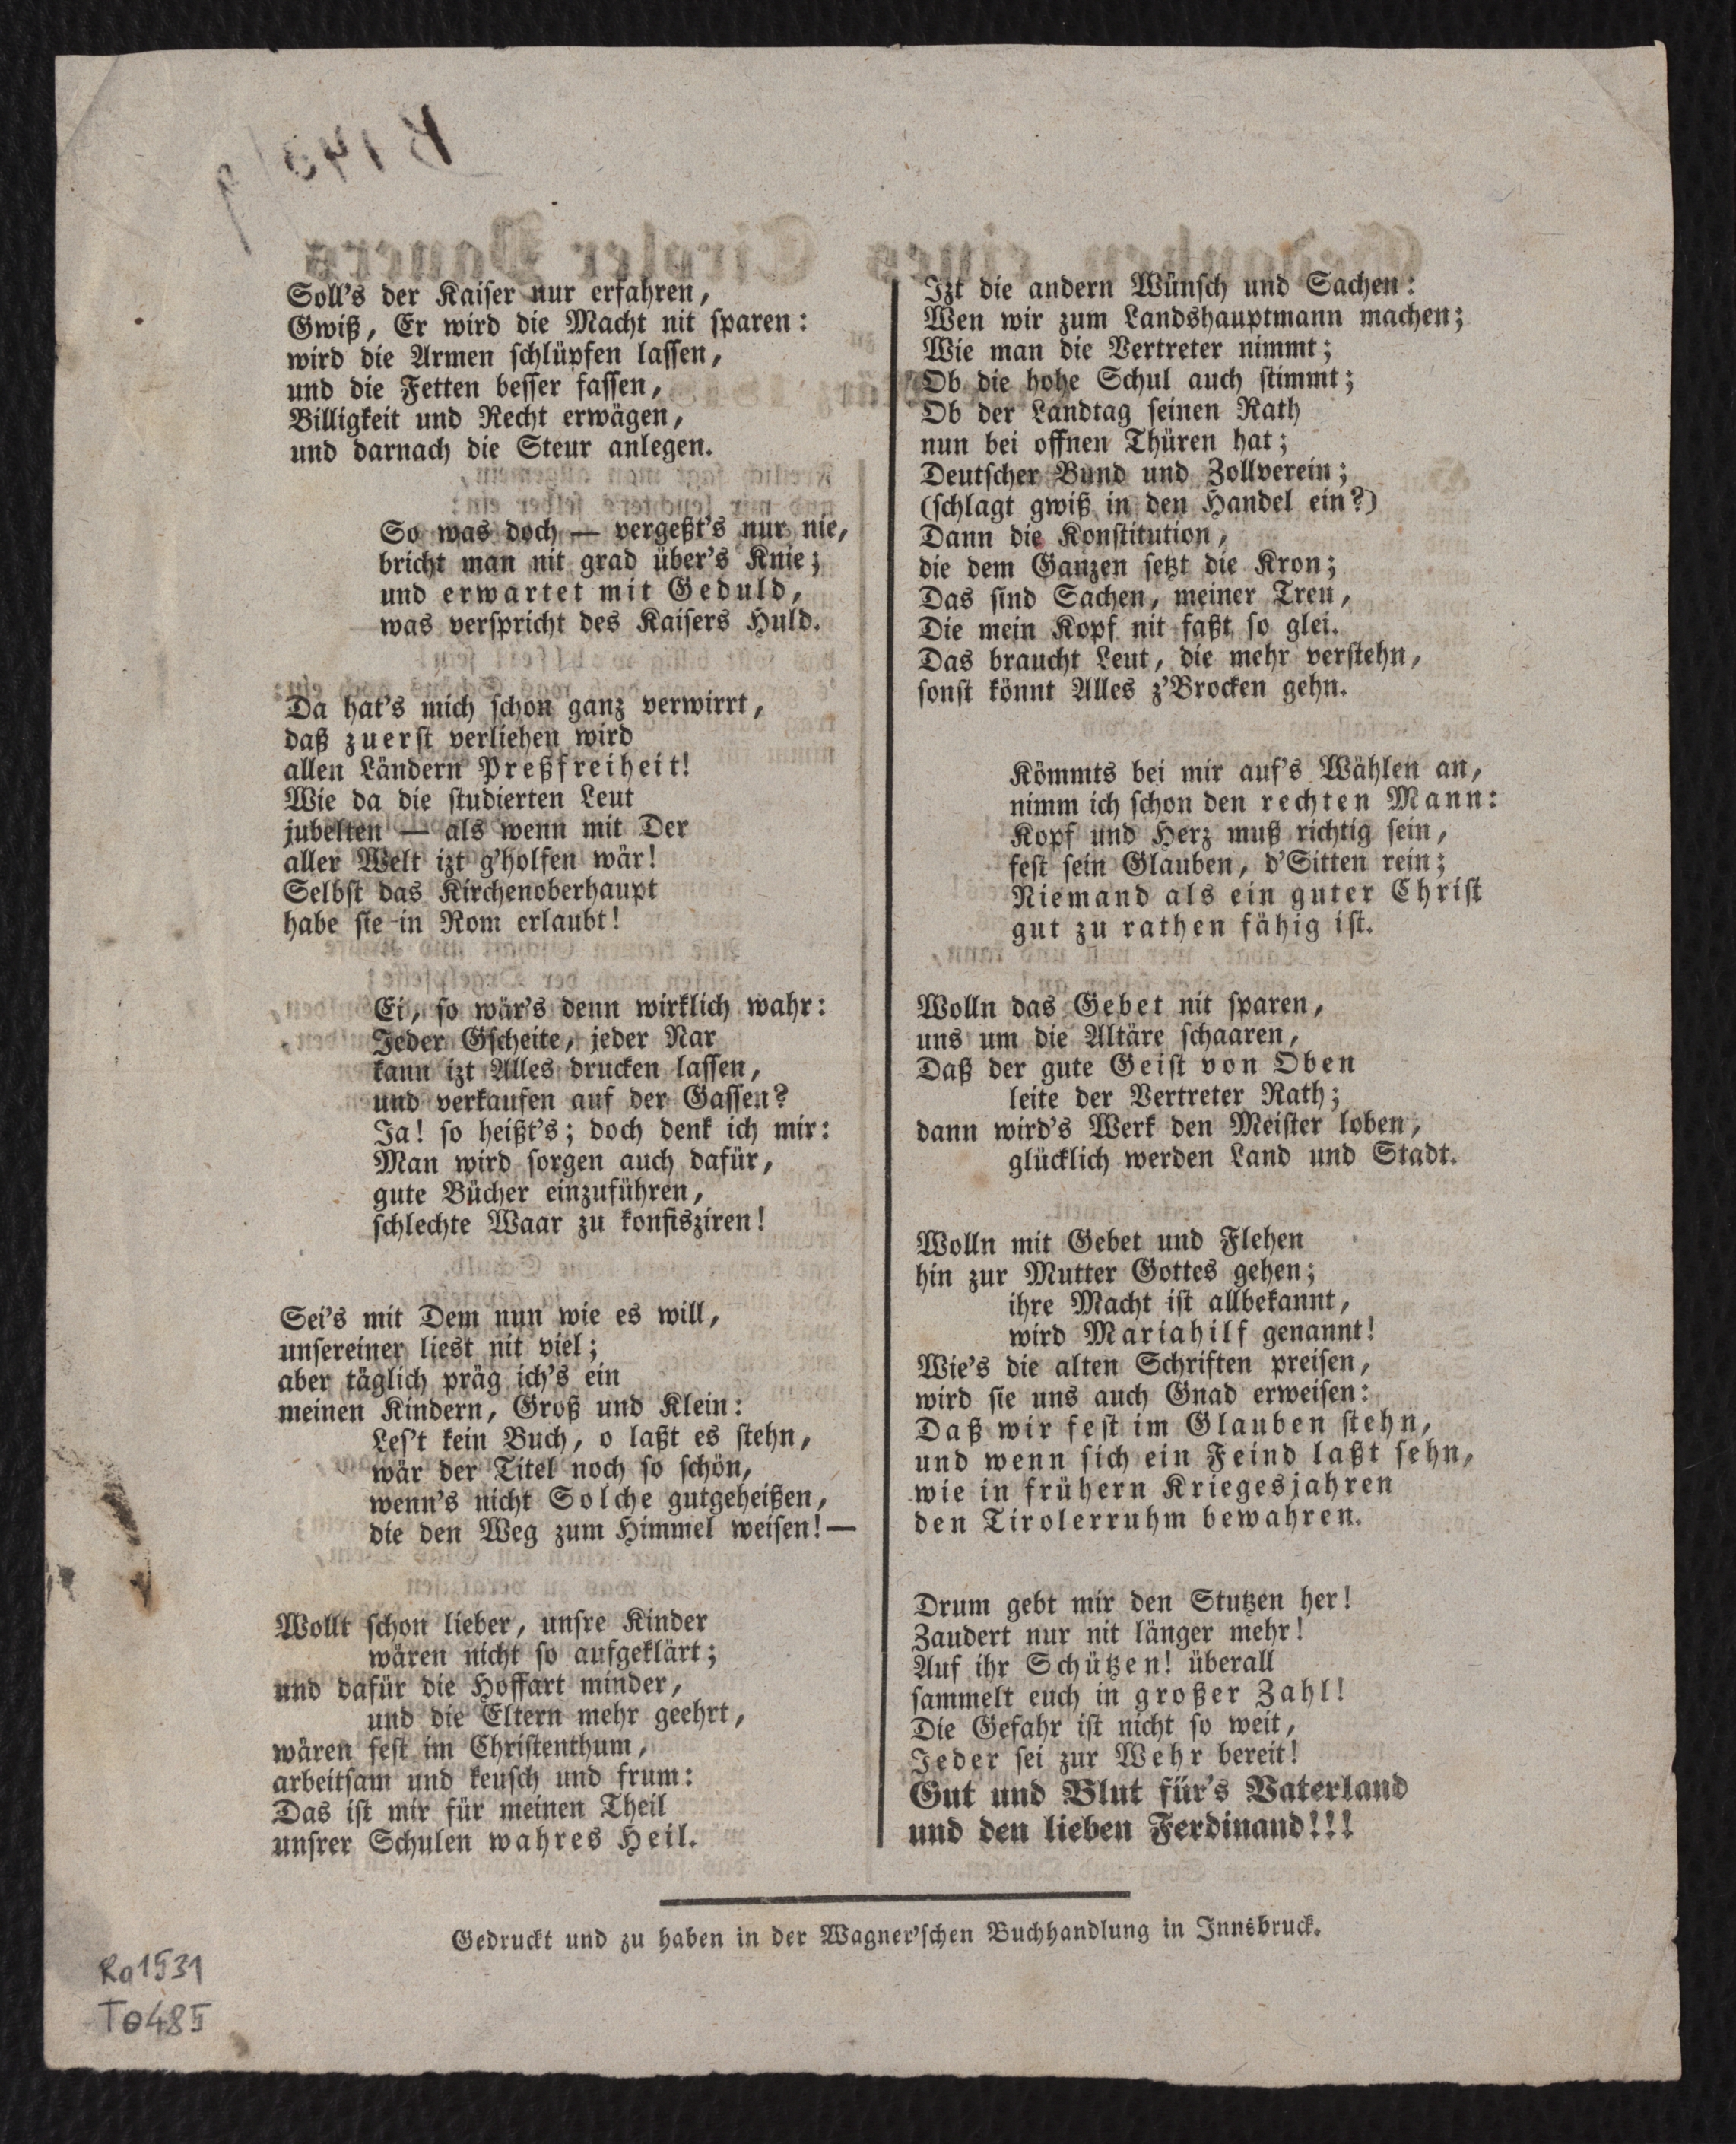 Soll's der Kaiser nur erfahren,
Gwiß, Er wird die Macht nit sparen:
wird die Armen schlüpfen lassen,
und die Fetten besser fassen,
Billigkeit und Recht erwägen,
und darnach die Steur anlegen.
So was doch — vergeßt's nur nie,
bricht man nit grad über's Knie;
und erwartet mit Geduld,
was verspricht des Kaisers Huld.
Da hat's mich schon ganz verwirrt,
daß zuerst verliehen wird
allen Ländern Preßfreiheit!
Wie da die studierten Leut
jubelten — als wenn mit Der
aller Welt izt g'holfen wär!
Selbst das Kirchenoberhaupt
habe sie in Rom erlaubt!
Ei, so wär's denn wirklich wahr:
Jeder Gscheite, jeder Nar
kann izt Alles drucken lassen,
und verkaufen auf der Gassen?
Ja! so heißt's; doch denk ich mir:
Man wird sorgen auch dafür,
gute Bücher einzuführen,
schlechte Waar zu konfisziren!
Sei's mit Dem nun wie es will,
unsereiner liest nit viel;
aber täglich präg ich's ein
meinen Kindern, Groß und Klein:
Les't kein Buch, o laßt es stehn,
wär der Titel noch so schön,
wenn's nicht Solche gutgeheißen,
die den Weg zum Himmel weisen!—
Wollt schon lieber, unsre Kinder
wären nicht so aufgeklärt;
und dafür die Hoffart minder,
und die Eltern mehr geehrt,
wären fest im Christenthum,
arbeitsam und keusch und frum:
Das ist mir für meinen Theil
unsrer Schulen wahres Heil.
Izt die andern Wünsch und Sachen:
Wen wir zum Landshauptmann machen;
Wie man die Vertreter nimmt;
Ob die hohe Schul auch stimmt;
Ob der Landtag seinen Rath
nun bei offnen Thüren hat;
Deutscher Bund und Zollverein;
(schlagt gwiß in den Handel ein?)
Dann die Konstitution,
die dem Ganzen setzt die Kron;
Das sind Sachen, meiner Treu,
Die mein Kopf nit faßt so glei.
Das braucht Leut, die mehr verstehn,
sonst könnt Alles z'Brocken gehn.
Kömmts bei mir auf's Wählen an,
nimm ich schon den rechten Mann:
Kopf und Herz muß richtig sein,
fest sein Glauben, d'Sitten rein;
Niemand als ein guter Christ
gut zu rathen fähig ist.
Wolln das Gebet nit sparen,
uns um die Altäre schaaren,
Daß der gute Geist von Oben
leite der Vertreter Rath;
dann wird's Werk den Meister loben,
glücklich werden Land und Stadt.
Wolln mit Gebet und Flehen
hin zur Mutter Gottes gehen;
ihre Macht ist allbekannt,
wird Mariahilf genannt!
Wie's die alten Schriften preisen,
wird sie uns auch Gnad erweisen:
Daß wir fest im Glauben stehn,
und wenn sich ein Feind laßt sehn,
wie in frühern Kriegesjahren
den Tirolerruhm bewahren.
Drum gebt mir den Stutzen her!
Zaudert nur nit länger mehr!
Auf ihr Schützen! überall
sammelt euch in großer Zahl!
Die Gefahr ist nicht so weit,
Jeder sei zur Wehr bereit!
Gut und Blut für's Vaterland
und den lieben Ferdinand!!!
Gedruckt und zu haben in der Wagner'schen Buchhandlung in Innsbruck.
Ra 1531
T0485